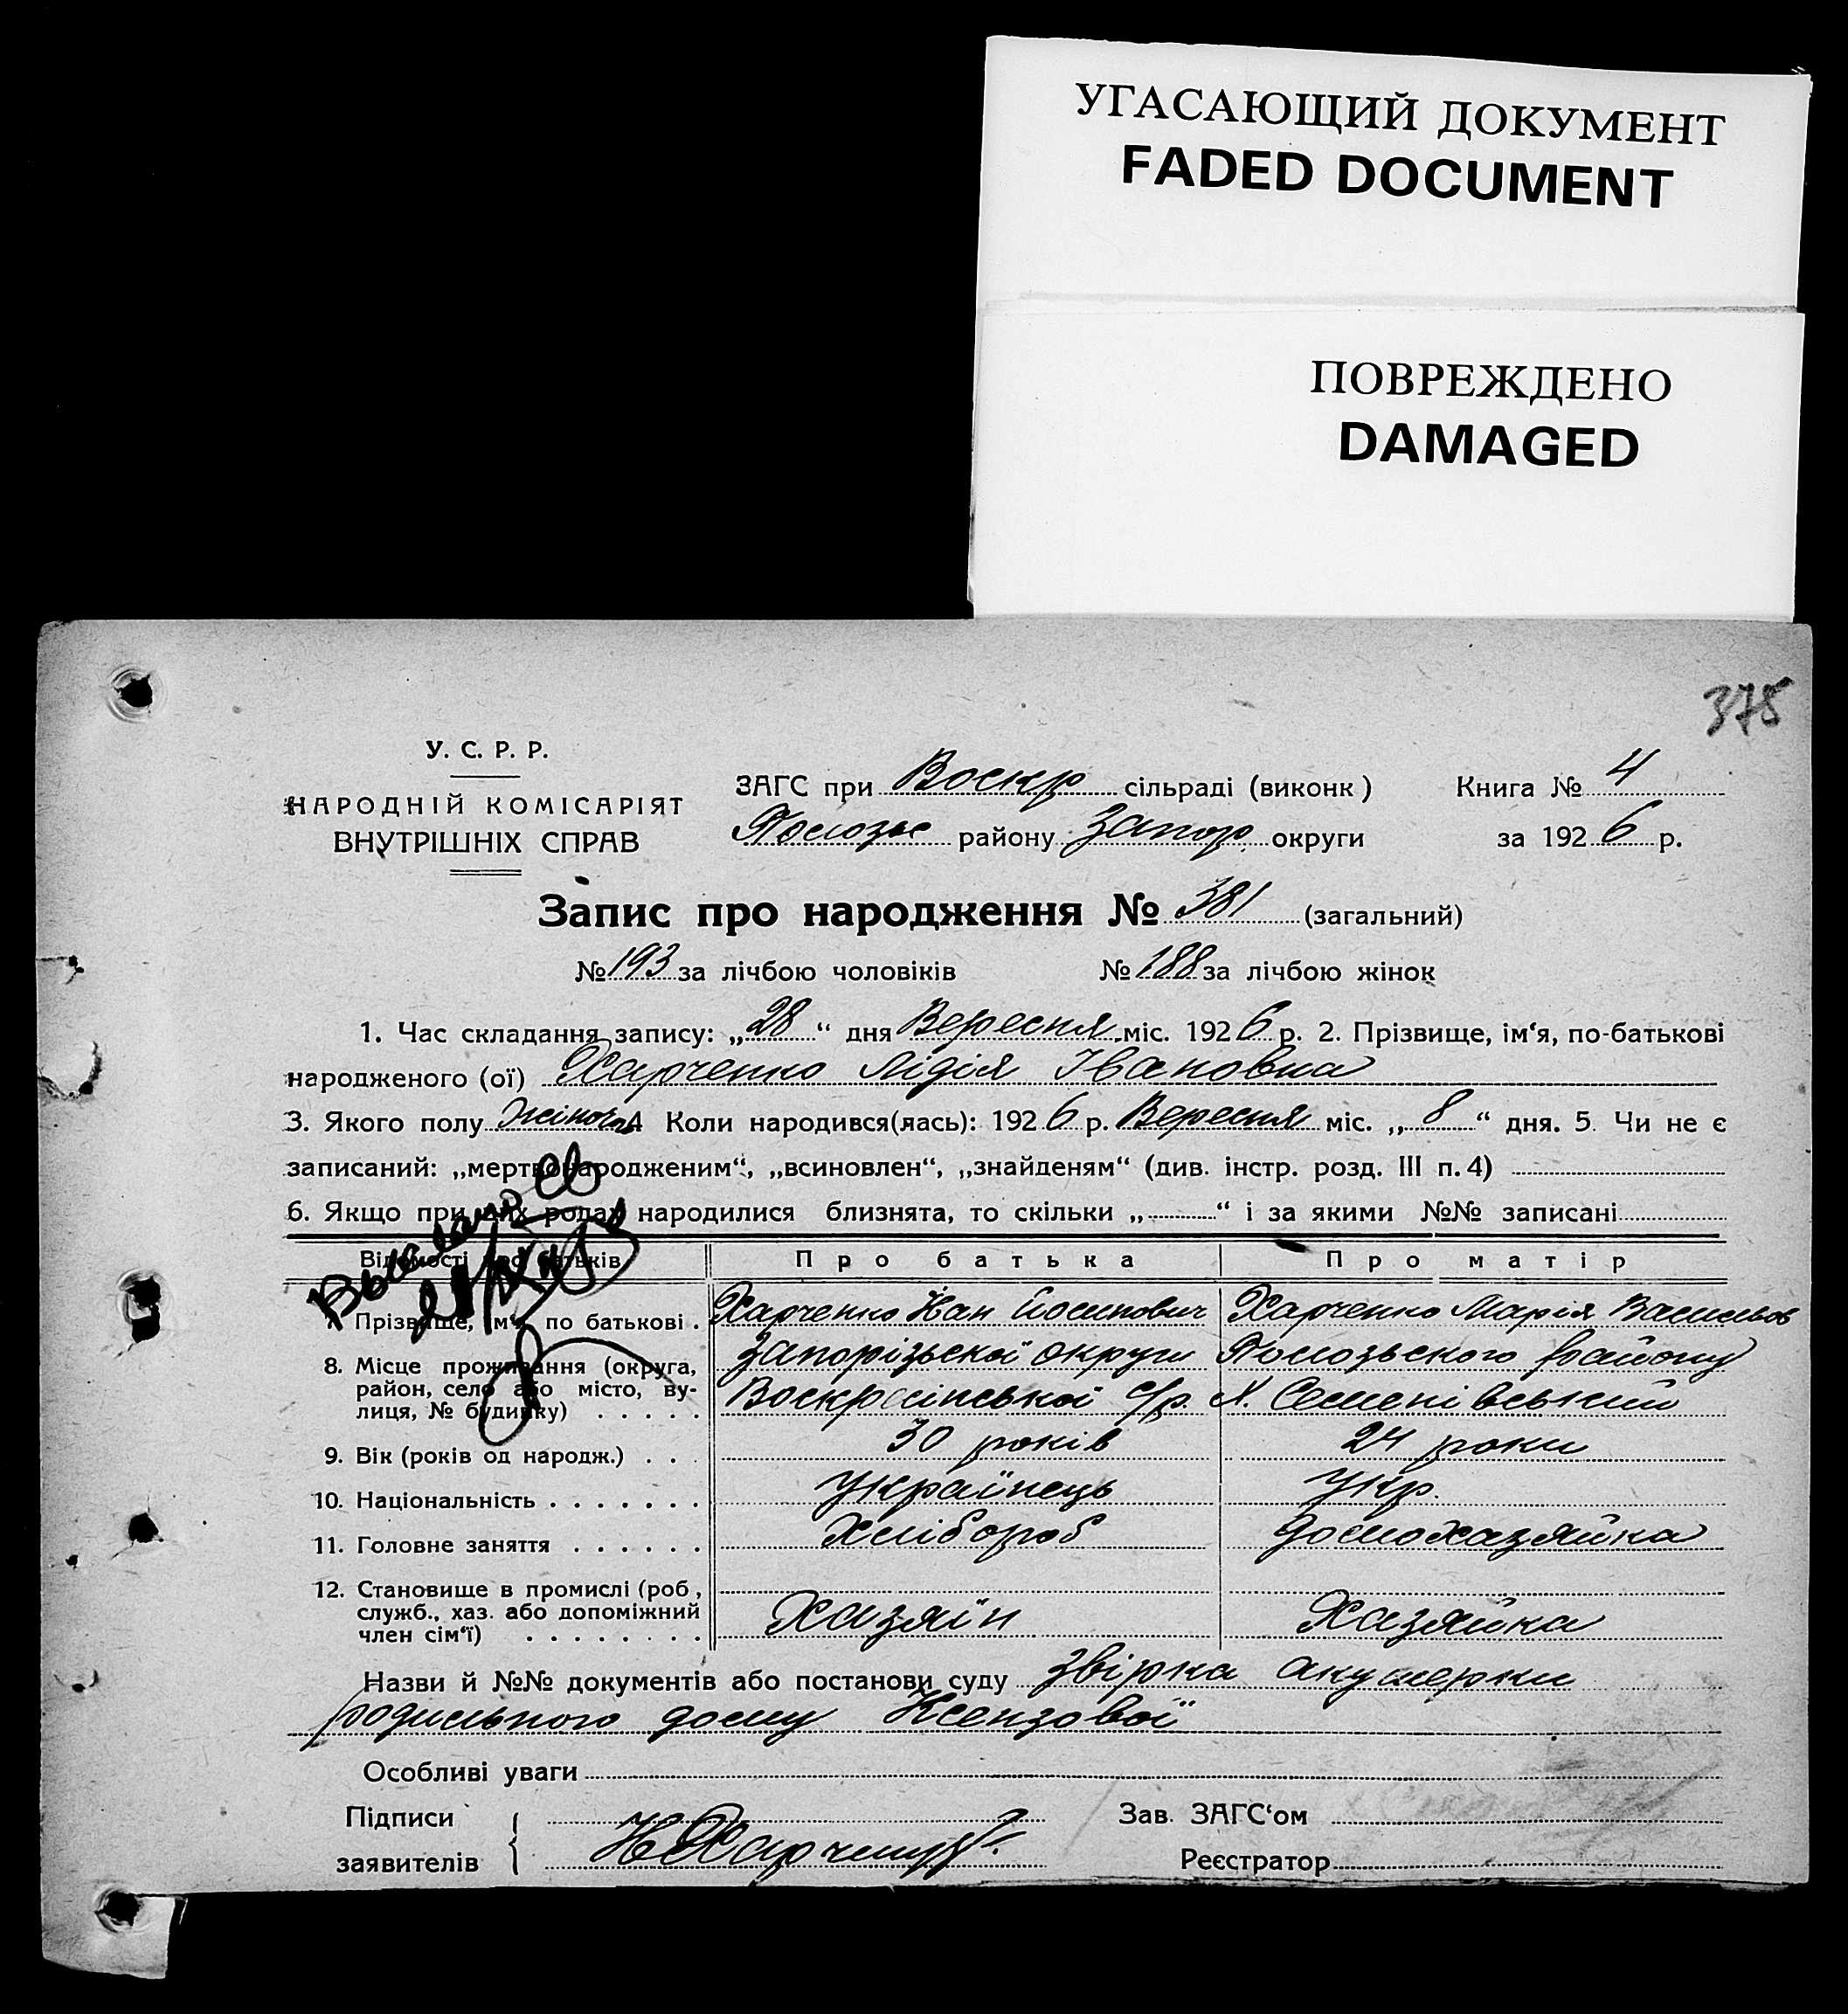 УГАСАЮЩИЙ ДОКУМЕНТ
FADED DOCUMENT
ПОВРЕЖДЕНО
DAMAGED
375
У. С. Р. Р.
НАРОДНІЙ КОМІСАРІЯТ
ВНУТРІШНІХ СПРАВ
ЗАГС при Воскр сільраді (виконк) Книга № 4
Полозьс району Запор. округи за 1926 р.
Запис про народження № 381 (загальний)
№ 193 за лічбою чоловіків № 188 за лічбою жінок
1. Час складання запису: „28“ дня Вересня міс. 1926 р. 2. Прізвище, ім‘я, по-батькові
народженого (ої) Харченко Лідія Івановна
3. Якого полу Жіноч. 4 Коли народився(лась): 1926 р. Вересня міс. „8“ дня. 5. Чи не є
записаний: „мертвонародженим“, „всиновлен“, „знайденям“ (див. інстр. розд. III п. 4)
6. Якщо при цих родах народилися близнята, то скільки „ “ і за якими №№ записані
Відомості про батьків Про батька Про матір
7. Прізвище, ім‘я, по батькові . Харченко Іван Йосипович Харченко Марія Васильов
8. Місце проживання (округа, район, село або місто, вулиця, № будинку) . . . . . Запорізької округи Полозьського району
Воскресінської с/р. Х. Семенівський
9. Вік (років од народж.) . . . 30 років 24 роки
10. Національність . . . . . . . Українець Укр.
11. Головне заняття . . . . . . Хлібороб Домохазяйка
12. Становище в промислі (роб, служб., хаз. або допоміжний член сім‘ї) . . . . . . . . Хазяїн Хазяйка
Назви й №№ документів або постанови суду Звірка акушерки
родильного дому
Особливі уваги
Підписи
заявителів
Зав. ЗАГС‘ом
Реєстратор